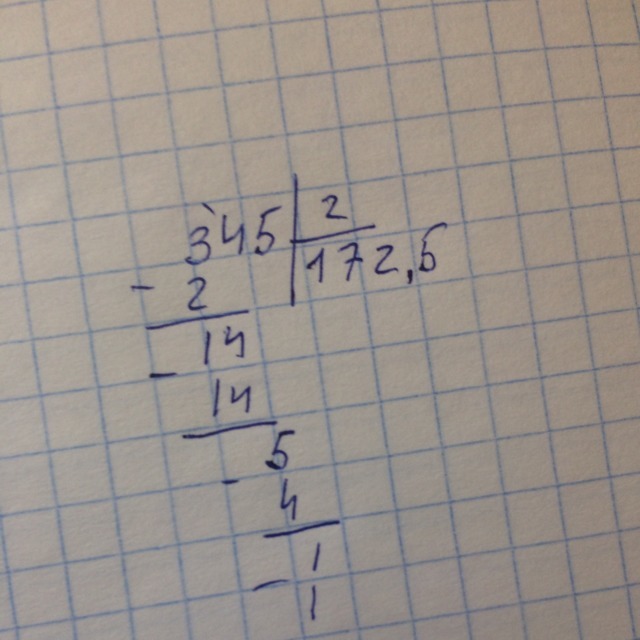 345 2
- 2 172,5
14
- 14
5
- 4
1
- 1